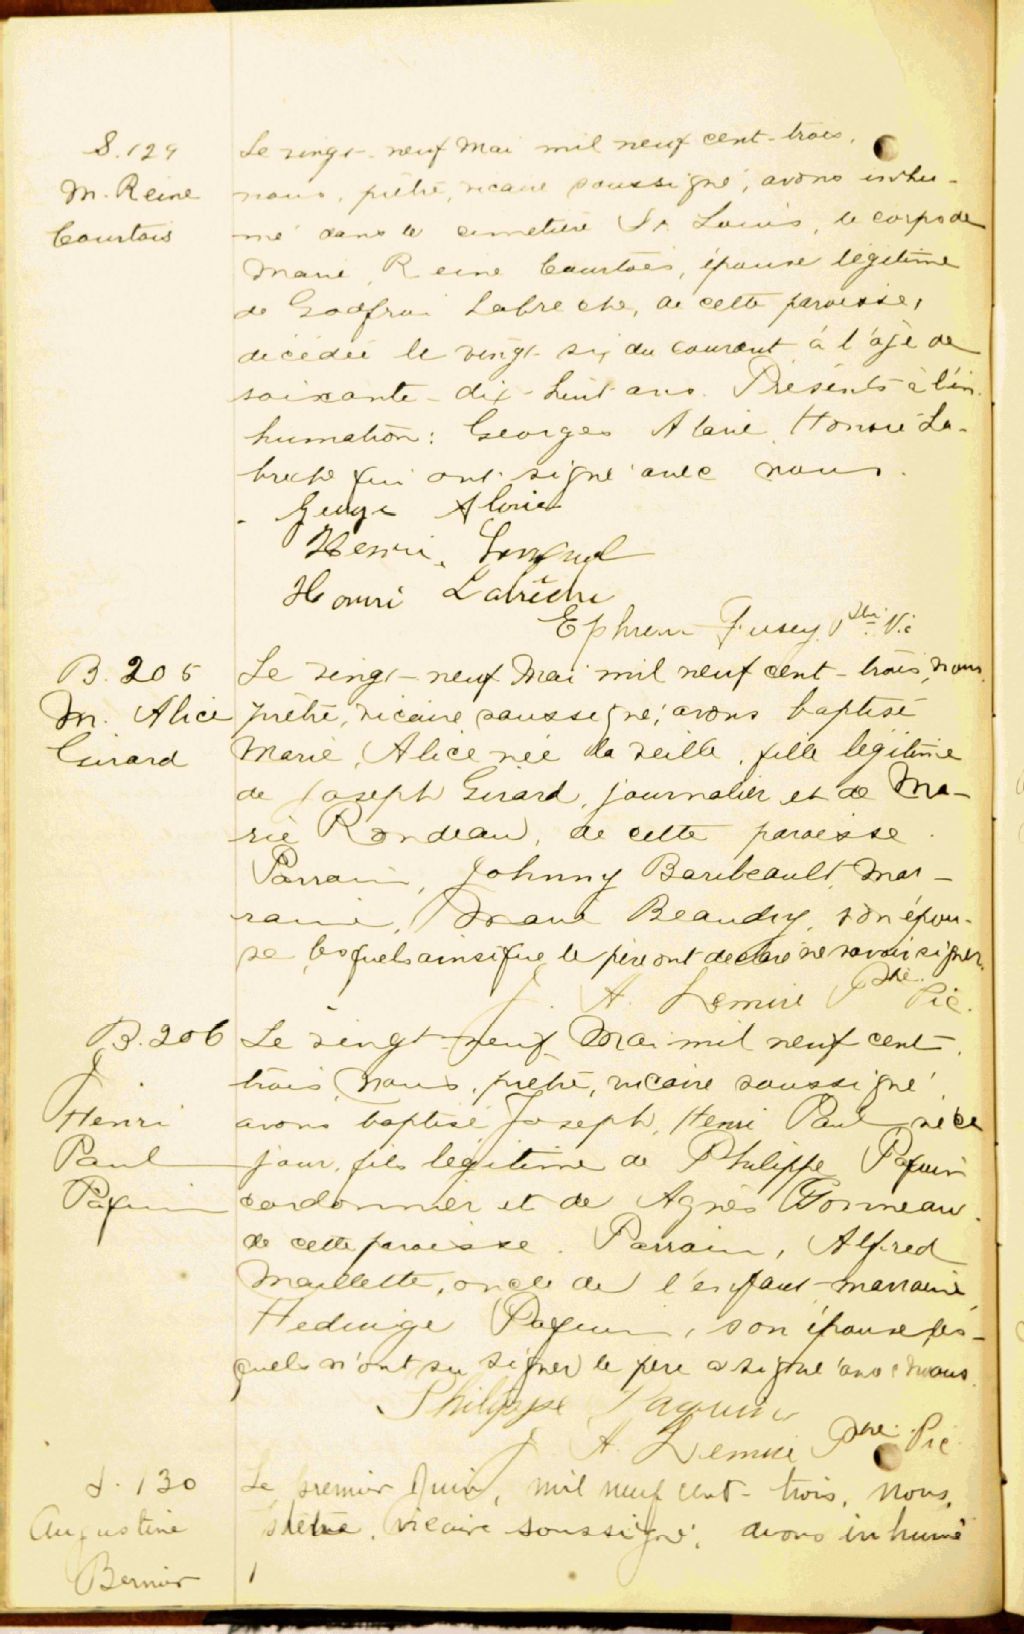 S. 129
M. Reine
Courtois
Le vingt-neuf Mai mil neuf cent-trois,
nous, prêtre, vicaire soussigné, avons inhu-
mé dans le cimetière St Louis, le corps de
Marie, Reine Courtois, épouse légitime
de Godfroi Labreche, de cette paroisse,
décédée le vingt-six du courant à l'âge de
soixante-dix-huit ans. Présents à l'in-
humation: Georges Alarie, Honoré La-
breche qui ont signé avec nous.
George Alarie
Henri
Honri Labrèche
Ephrem Fusey Ptre Vic
B. 205
M. Alice
Girard
Le vingt-neuf Mai mil neuf cent-trois, nous,
prêtre, vicaire soussigné, avons baptisé
Marie, Alice née la veille, fille légitime
de Joseph Girard, journalier et de Ma-
rie Rondeau, de cette paroisse.
Parrain, Johnny Baribeault, mar-
raine, Beaudry, son épou-
se, lesquels ainsi que le père ont declaré ne savoir signer.
J. A. Lemire Ptre Vic.
B. 206
J.
Henri
Paul
Paquin
Le vingt-neuf Mai mil neuf cent-
trois, nous, prêtre, vicaire soussigné,
avons baptisé Joseph, Henri Paul né ce
jour, fils légitime de Philippe Paquin
cordonnier et de Agnès
de cette paroisse. Parrain, Alfred
Maillette, oncle de l'enfant-marraine,
Hedwige Paquin, son épouse les-
quels n'ont su signer le père a signé avec nous.
Philippe Paquin
J. A. Lemire Ptre Vic
S. 130
Augustine
Bernier
Le premier Juin, mil neuf cent-trois, nous,
prêtre, vicaire soussigné, avons inhumé